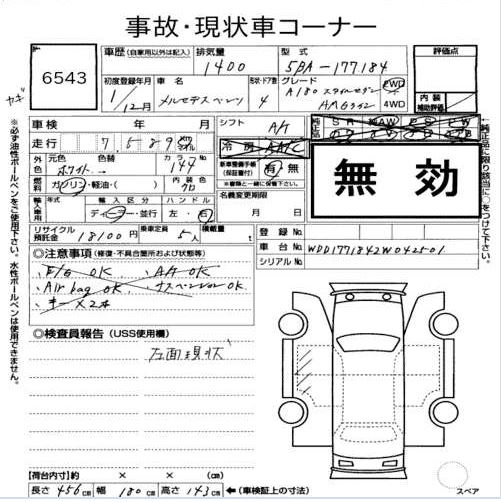 事故・現状車コーナー
6543
車歴(自家用以外は記入)
排気量
1400
型式
5BA-177184
評価点
初度登録年月
1/12月
車名
メルセデスベンツ
ドア形状
4
グレード
A180
2WD
4WD
内装
補助評価
車検 年 月
走行 7,589 km マイル
シフト A/T
冷房 AAC
外色
元色
ホワイト
色替
カラーNo
149
内装色
クロ
燃料
ガソリン・軽油・( )
新車整備手帳
(保証書付)
有 無
※書類と一緒に保管下さい。
無効
輸入車用
年式
輸入区分
ディーラー・並行
ハンドル
左・右
名義変更期限
月 日
リサイクル預託金
18100円
乗車定員
5人
積載量
t
登録No.
車台No.
WDD1771842W042501
シリアルNo.
◎注意事項(修復・不具合箇所および状態等)
E/G OK ・A/T OK
・Air bag OK ・サスペンション OK
・キー×2本
◎検査員報告(USS使用欄)
左面現状
【荷台内寸】約 × × (cm)
長さ 456cm 幅 180cm 高さ 143cm
←(車検証上の寸法)
スペア
※必ず油性ボールペンをご使用下さい。水性ボールペンは使用できません。